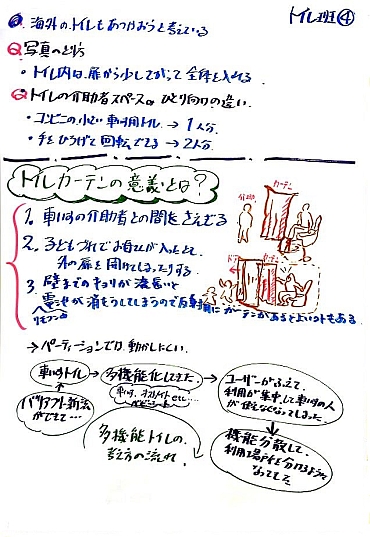 トイレ班④
海外のトイレもあつかおうと考えている
Q 写真のとり方
・トイレ内は、扉から少し下がって全体を入れる
Q トイレの介助者スペースのひとり向けの違い
・コンビニの小さい車いす用トイレ → 1人分
・手をひろげて回転できる → 2人分
トイレカーテンの意義とは?
1. 車いすの介助者との間をさえぎる
2. 子どもづれでお母さんが入ったとき
外の扉を開けてしまったりする
3. 壁までのキョリが遠いと
電池が消もうしてしまうので反射用にカーテンがあるとよいトイレもある
リモコンの
介助
カーテン
ドア
カーテン
→パーテーションでは、動かしにくい
車いすトイレ → 多機能化してきた →
車いす、オストメイト etc…
バリアフリー新法ができて…
ユーザーがふえて、
利用が集中して車いすの人
が使えなくなってしまった
多機能トイレの、
考え方の流れ
機能分散して、
利用場所を分けるように
なってきた